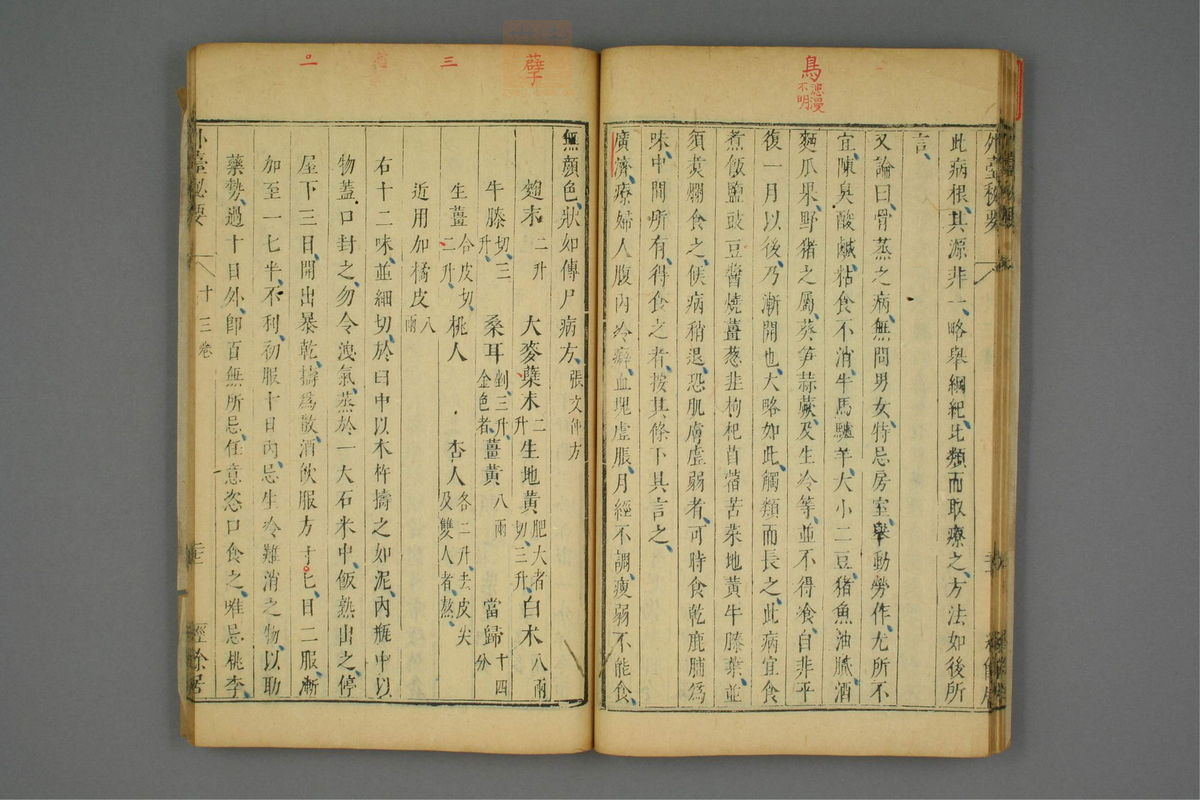 鳥
漶漫
不明
外臺秘要
此病根其源非一略舉綱紀比類而取療之方法如後所
言
又論曰骨蒸之病無問男女特忌房室舉動勞作尤所不
宜陳臭酸鹹粘食不消牛馬驢羊大小二豆猪魚油膩酒
麵瓜果野猪之屬葵笋蒜蕨及生冷等並不得飡自非平
復一月以後乃漸開也大略如此觸類而長之此病宜食
煮飯鹽豉豆醬燒薑葱韭枸杞苜蓿苦菜地黃牛膝葉並
須煑爛食之候病稍退恐肌膚虛弱者可時食乾鹿脯爲
味中間所有得食之者按其條下具言之
廣濟療婦人腹內冷癖血塊虛脹月經不調瘦弱不能食
孽
三
無顏色狀如傳尸病方張文仲方
麴末二升 大麥蘖末二升 生地黃肥大者切三升 白术八兩
牛膝切三升 桑耳剉三升金色者 薑黃八兩 當歸十四分
生薑合皮切二升 桃人 杏人各二升去皮尖及雙人者熬
近用加橘皮八兩
右十二味並細切於臼中以木杵擣之如泥內瓶中以
物蓋口封之勿令洩氣蒸於一大石米中飯熟出之停
屋下三日開出暴乾擣爲散酒飲服方寸匕日二服漸
加至一七半不利初服十日內忌生冷難消之物以助
藥勢過十日外卽百無所忌任意恣口食之唯忌桃李
外臺秘要
十三卷
經餘居